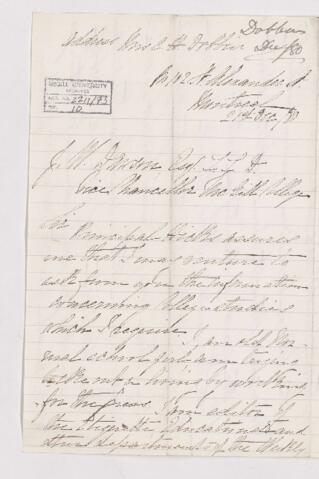 Dobbin
Dec/80
Address Mrs C H Dobbin
No 102 St Alexander St.
Montreal
21st Dec/80
McGILL UNIVERSITY
ARCHIVES
ACC. NO. 2211/73
REF. 10
J. W. Dawson Esq. L. L. D.
Vice Chancellor McGill College
Sir
Principal Hicks assures
me that I may venture to
ask from you the information
concerning College studies
which I require. I, an old Nor-
mal school girl am trying
to earn a living by working
for the press. I am editor of
the Domestic Educational and
other departments of the Weekly